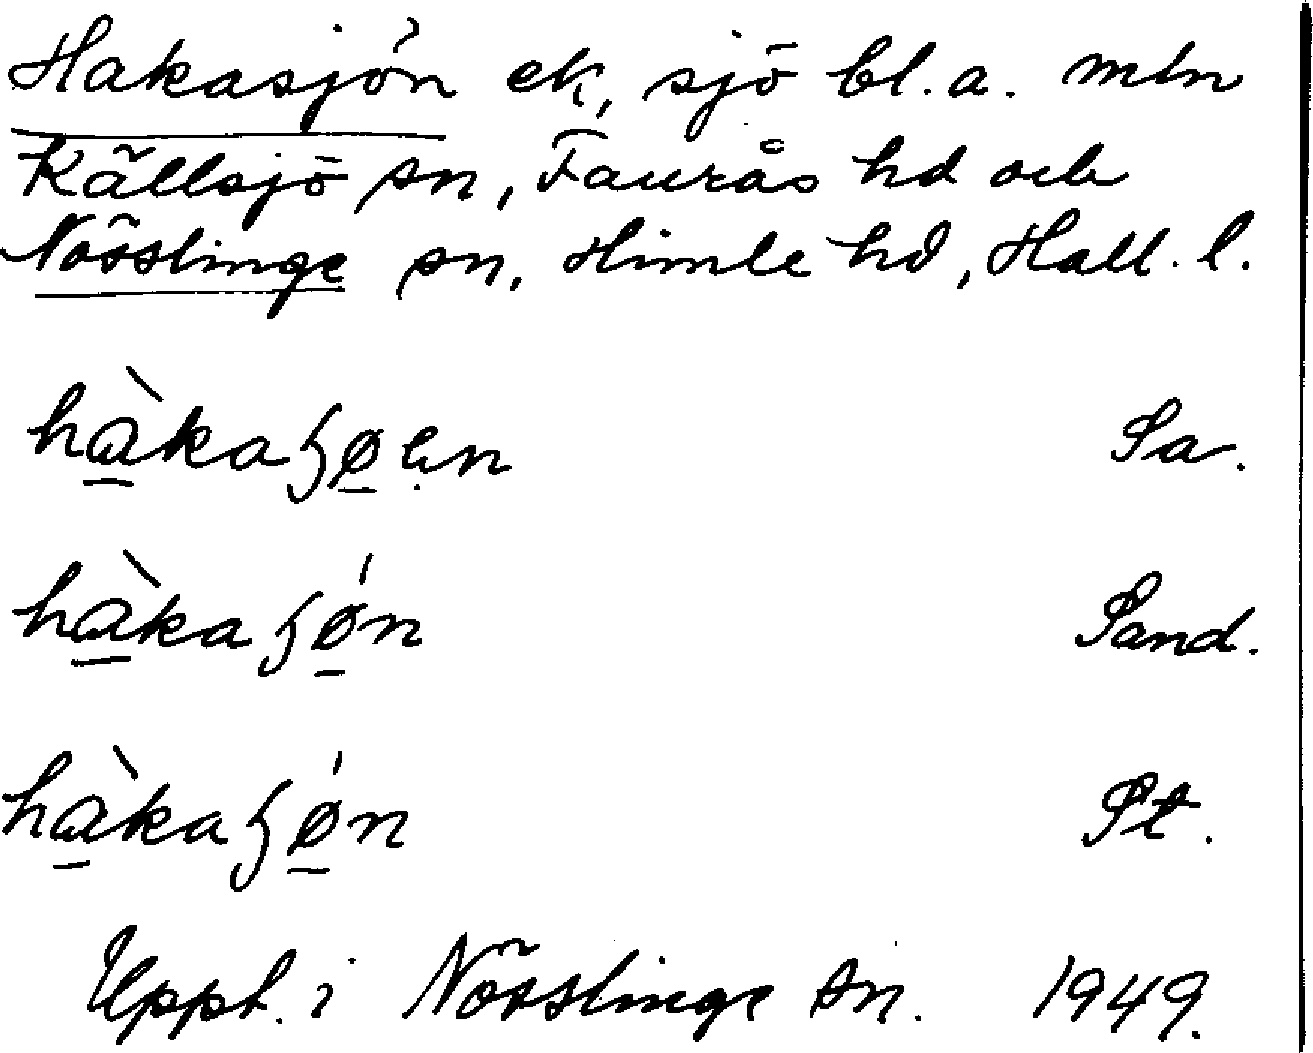 Hakasjön ek, sjö bl.a. mln
Källsjö sn, Faurås hd och
Nösslinge sn, Himle hd, Hall. l.
hàkaʒøen Sa.
hàkaʒǿn Sand.
hàkaʒǿn St.
Uppt. i Nösslinge sn. 1949.